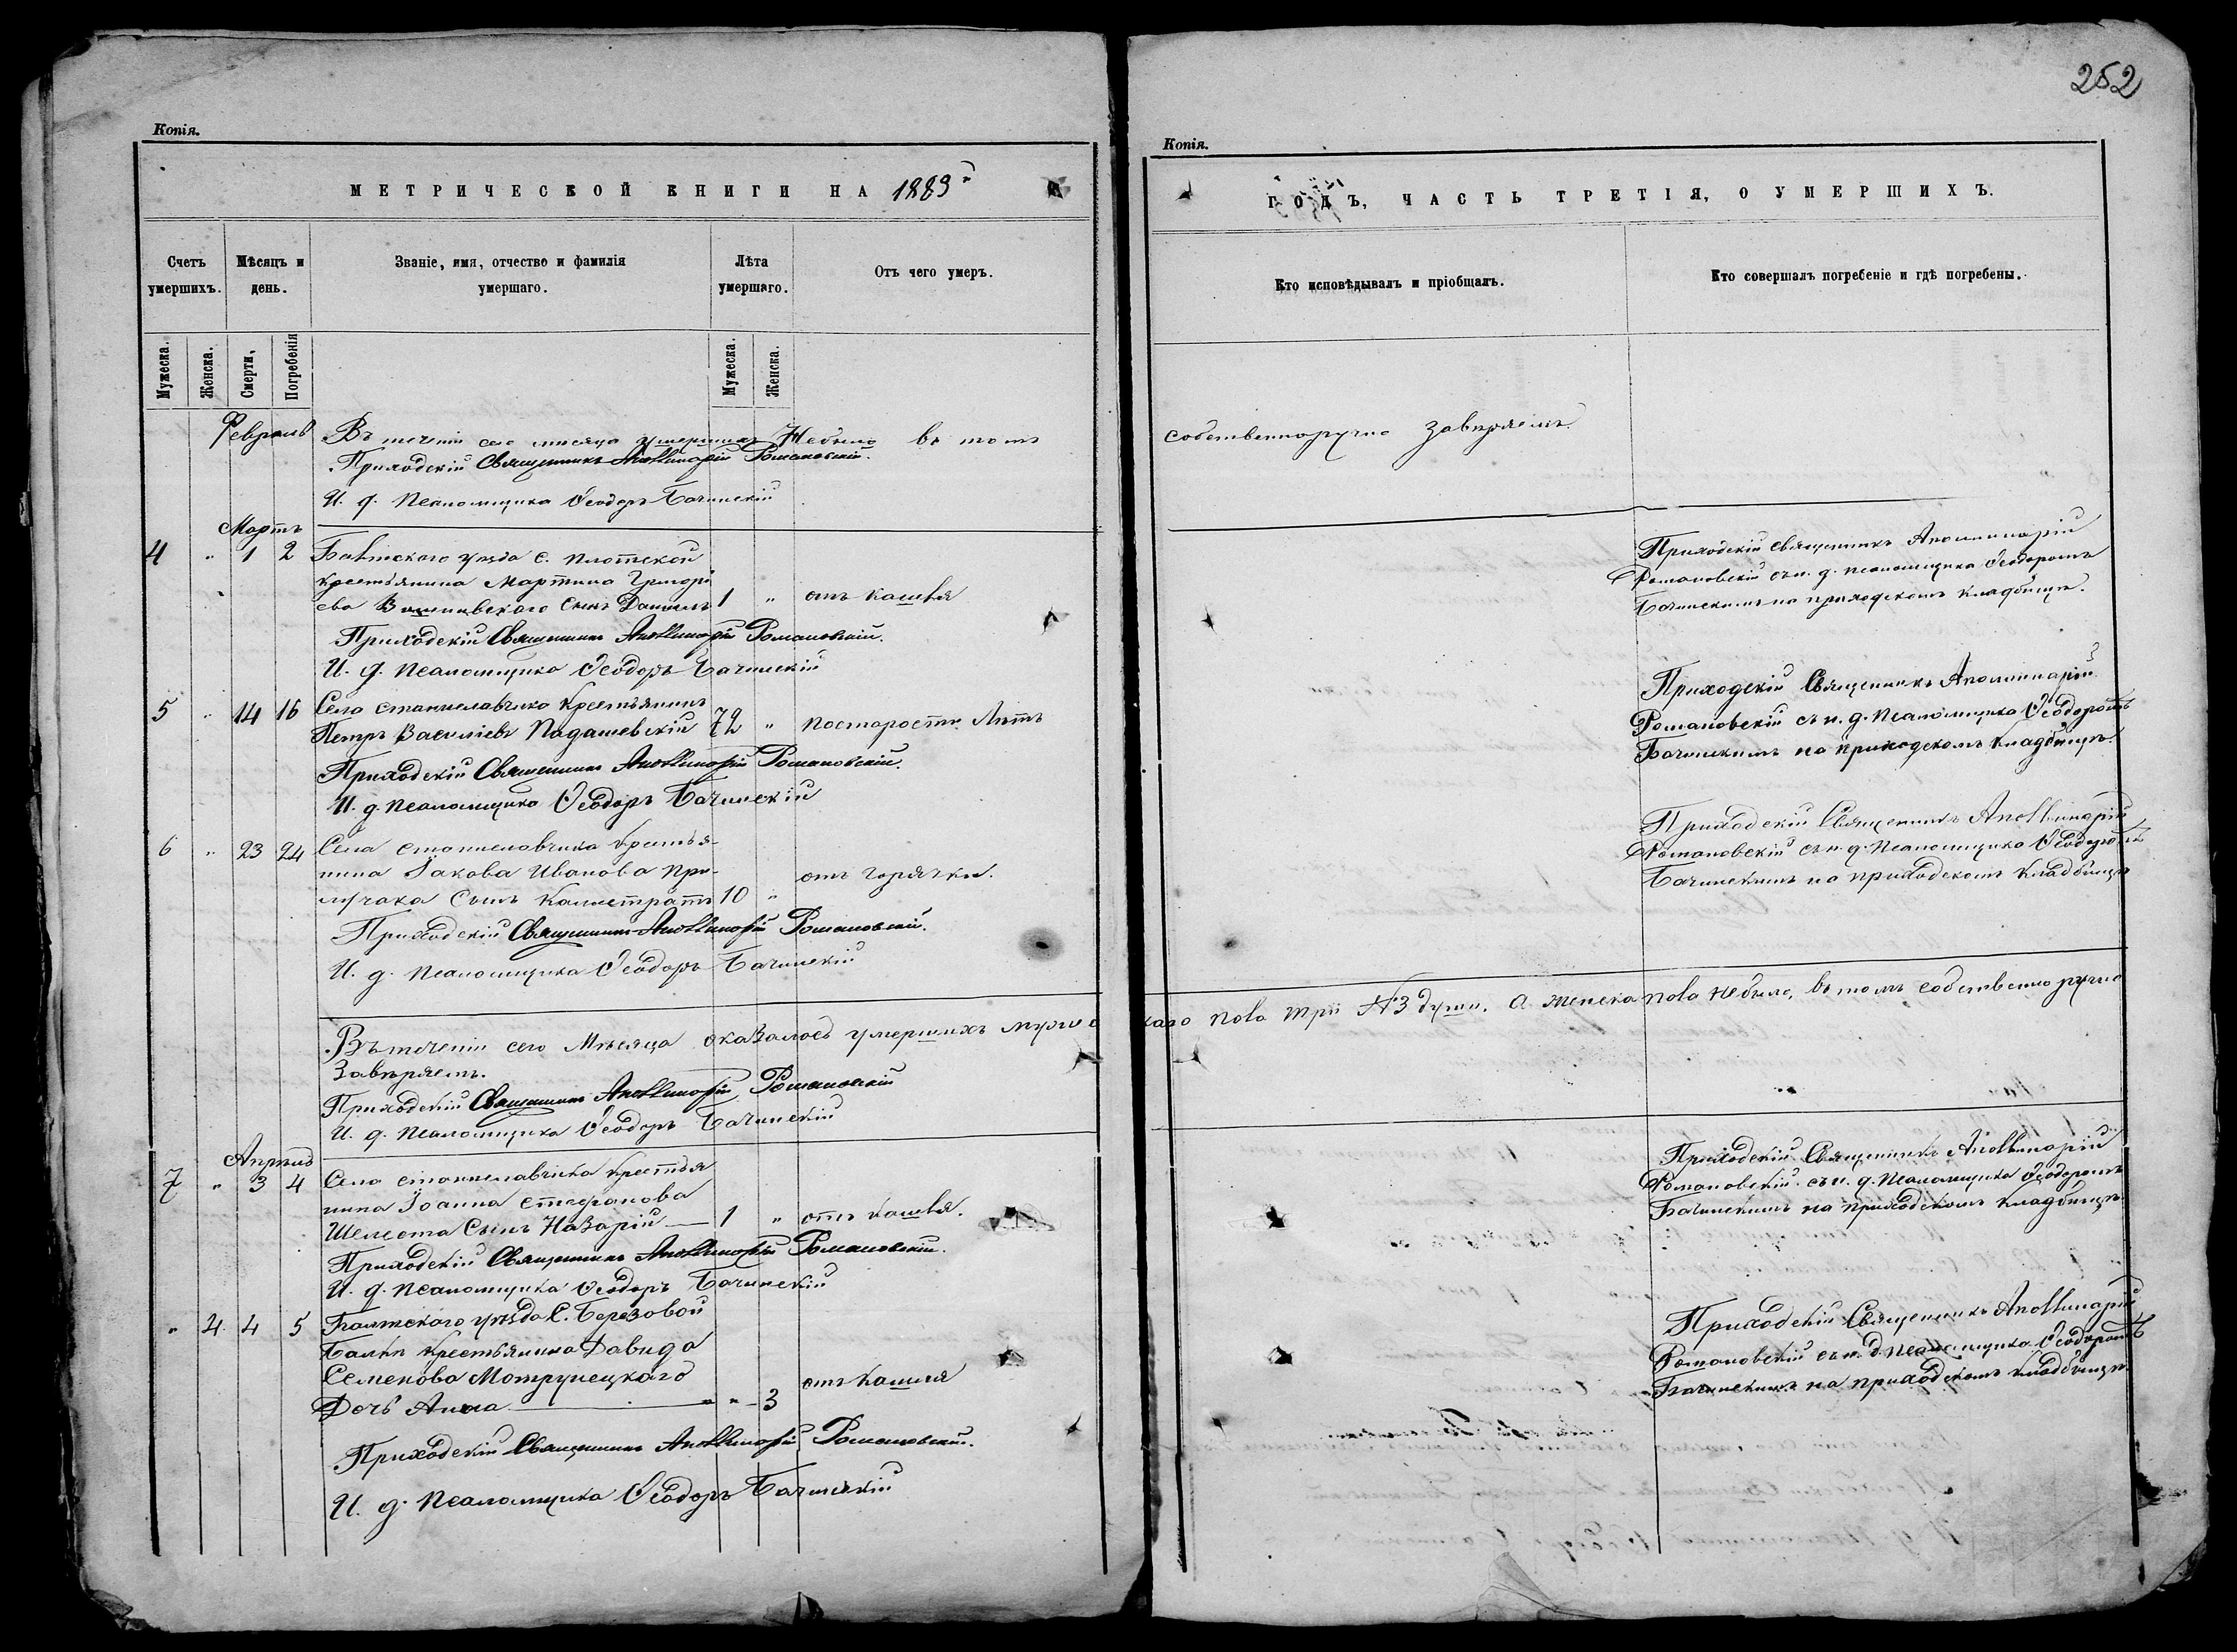 252
Копія.
МЕТРИЧЕСКОЙ КНИГИ НА 1883
Счетъ умершихъ.
Мѣсяцъ и день.
Званіе, имя, отчество и фамилія умершаго.
Лѣта умершаго.
Отъ чего умеръ.
Мужеска.
Женска.
Смерти,
Погребенія
Мужеска.
Женска.
Февраль
Въ теченіи сего мѣсяца умершихъ Небыло въ томъ
Приходскій Священникъ Аполлинарій Романовскій.
И. д. Псаломщика Ѳеодоръ Бачинскій
Мартъ
4 " 1 2 Балтскаго уѣзда с. Плотской
крестьянина Мартина Григорі
ева сынъ Даніилъ 1 " отъ кашля
Приходскій Священникъ Аполлинарій Романовскій.
И. д. Псаломщика Ѳеодоръ Бачинскій
5 " 14 16 Села Станиславчика Крестьянинъ
Петръ Василіевъ Падашевскій 72 " по старости Лѣтъ
Приходскій Священникъ Аполлинарій Романовскій.
И. д. Псаломщика Ѳеодоръ Бачинскій
6 " 23 24 Села Станиславчика Крестья-
нина Іакова Иванова При-
лучака Сынъ Каллистратъ 10 " отъ горячки.
Приходскій Священникъ Аполлинарій Романовскій.
И. д. Псаломщика Ѳеодоръ Бачинскій
Въ теченіи сего Мѣсяца оказалось умершихъ мужес
Завѣряемъ.
Приходскій Священникъ Аполлинарій Романовскій
И. д. Псаломщика Ѳеодоръ Бачинскій
Апрѣль
7 " 3 4 Села Станиславчика Крестья
нина Іоанна Стефанова
Шелеста Сынъ Назарій 1 " отъ кашля.
Приходскій Священникъ Аполлинарій Романовскій.
И. д. Псаломщика Ѳеодоръ Бачинскій
" 4 4 5 Балтскаго уѣзда С. Березовой
Балки Крестьянина Давида
Семенова Мотрунецкаго
Дочь Анна " 3 отъ Кашля
Приходскій Священникъ Аполлинарій Романовскій.
И. д. Псаломщика Ѳеодоръ Бачинскій
Копія.
ГОДЪ, ЧАСТЬ ТРЕТІЯ, О УМЕРШИХЪ.
Кто исповѣдывалъ и пріобщалъ.
Кто совершалъ погребеніе и гдѣ погребены.
собственноручно завѣряемъ.
Приходскій священникъ Аполлинарій
Романовскій съ и. д. псаломщика Ѳеодоромъ
Бачинскимъ на приходскомъ кладбищѣ.
Приходскій Священникъ Аполлинарій
Романовскій съ и. д. Псаломщика Ѳеодоромъ
Бачинскимъ на приходскомъ кладбищѣ.
Приходскій Священникъ Аполлинарій
Романовскій съ и. д. Псаломщика Ѳеодоромъ
Бачинскимъ на приходскомъ Кладбищѣ
каго пола три №3 души. А женска пола Небыло, въ томъ собственоручно
Приходскій Священникъ Аполлинарій
Романовскій съ и. д. Псаломщика Ѳеодоромъ
Бачинскимъ на приходскомъ кладбищѣ
Приходскій Священникъ Аполлинарій
Романовскій съ и. д. Псаломщика Ѳеодоромъ
Бачинскимъ на приходскомъ кладбищѣ